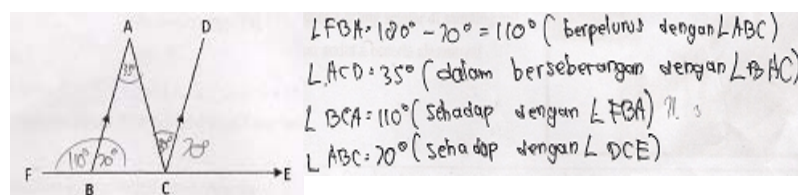 A D
35°
35° 70°
110° 70°
F B C E
∠FBA = 180° - 70° = 110° (berpelurus dengan ∠ABC)
∠ACD = 35° (dalam berseberangan dengan ∠BAC)
∠BCA = 110° (sehadap dengan ∠FBA)
∠ABC = 70° (sehadap dengan ∠DCE)